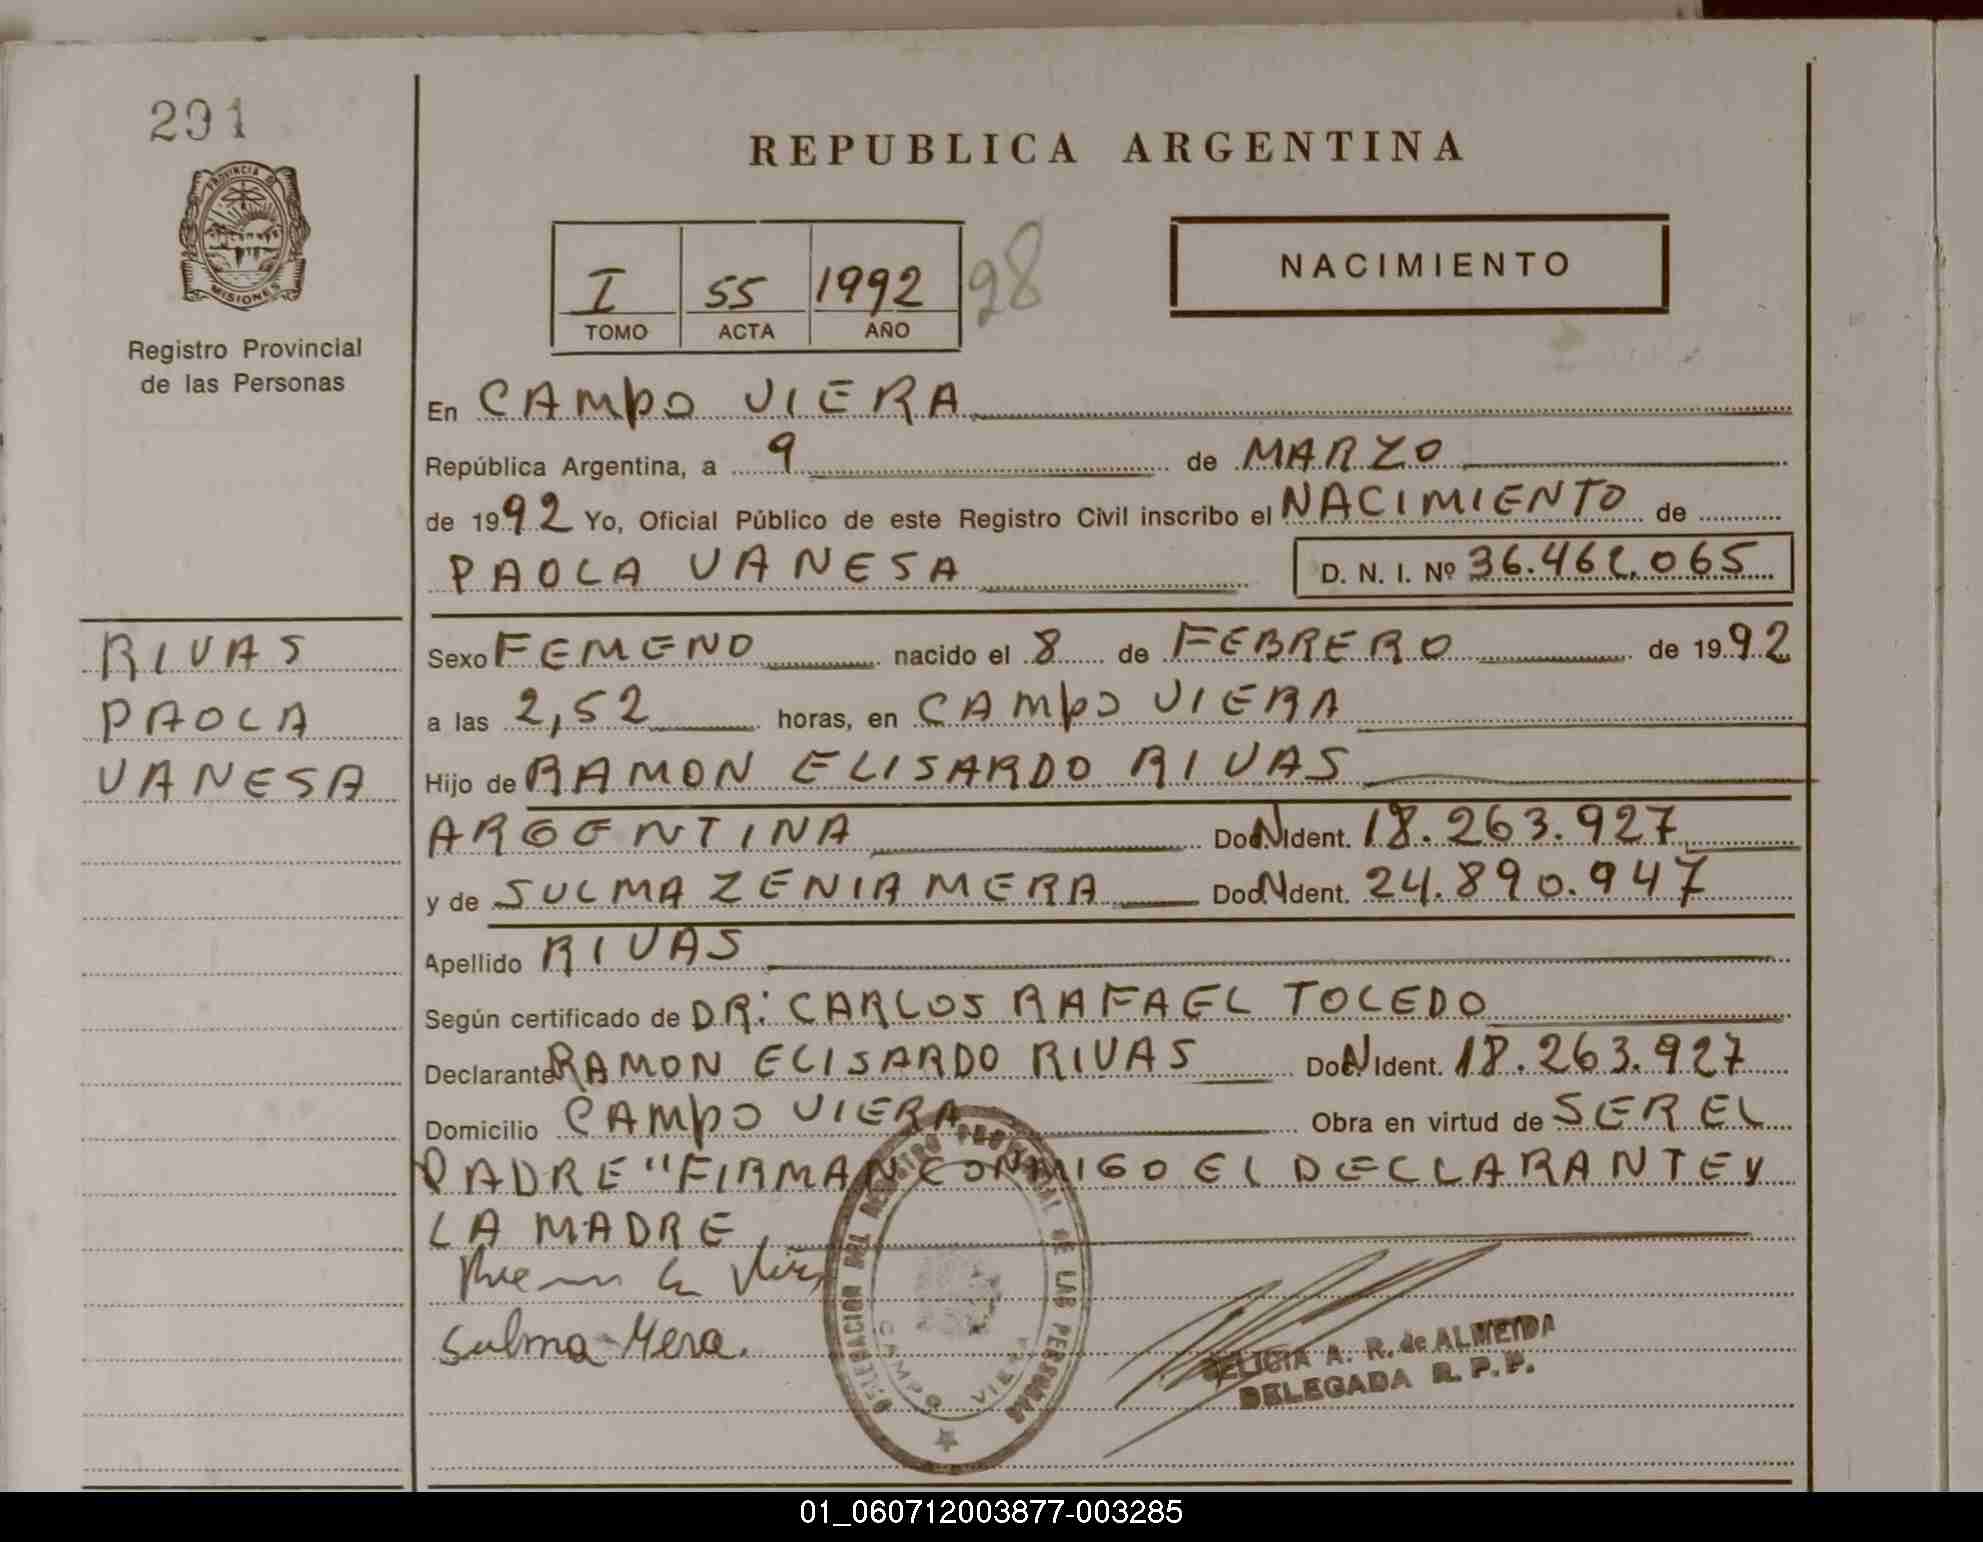 291
PROVINCIA DE
MISIONES
Registro Provincial
de las Personas
REPUBLICA ARGENTINA
I 55 1992 98
TOMO ACTA AÑO
NACIMIENTO
En CAMPO VIERA
República Argentina, a 9 de MARZO
de 1992 Yo, Oficial Público de este Registro Civil inscribo el NACIMIENTO de
PAOLA VANESA D. N. I. Nº 36.462.065
RIVAS
PAOLA
VANESA
Sexo FEMENO nacido el 8 de FEBRERO de 1992
a las 2,52 horas, en CAMPO VIERA
Hijo de RAMON ELISARDO RIVAS
ARGENTINA Doc. N Ident. 18.263.927
y de SULMA ZENIA MERA Doc. N Ident. 24.890.947
Apellido RIVAS
Según certificado de DR: CARLOS RAFAEL TOLEDO
Declarante RAMON ELISARDO RIVAS Doc. N Ident. 18.263.927
Domicilio CAMPO VIERA Obra en virtud de SER EL
PADRE "FIRMAN CONMIGO EL DECLARANTE Y
LA MADRE
Sulma Mera.
DELEGACION DEL REGISTRO PROVINCIAL DE LAS PERSONAS
CAMPO VIERA
DELICIA A. R. de ALMEIDA
DELEGADA R. P. P.
01_060712003877-003285